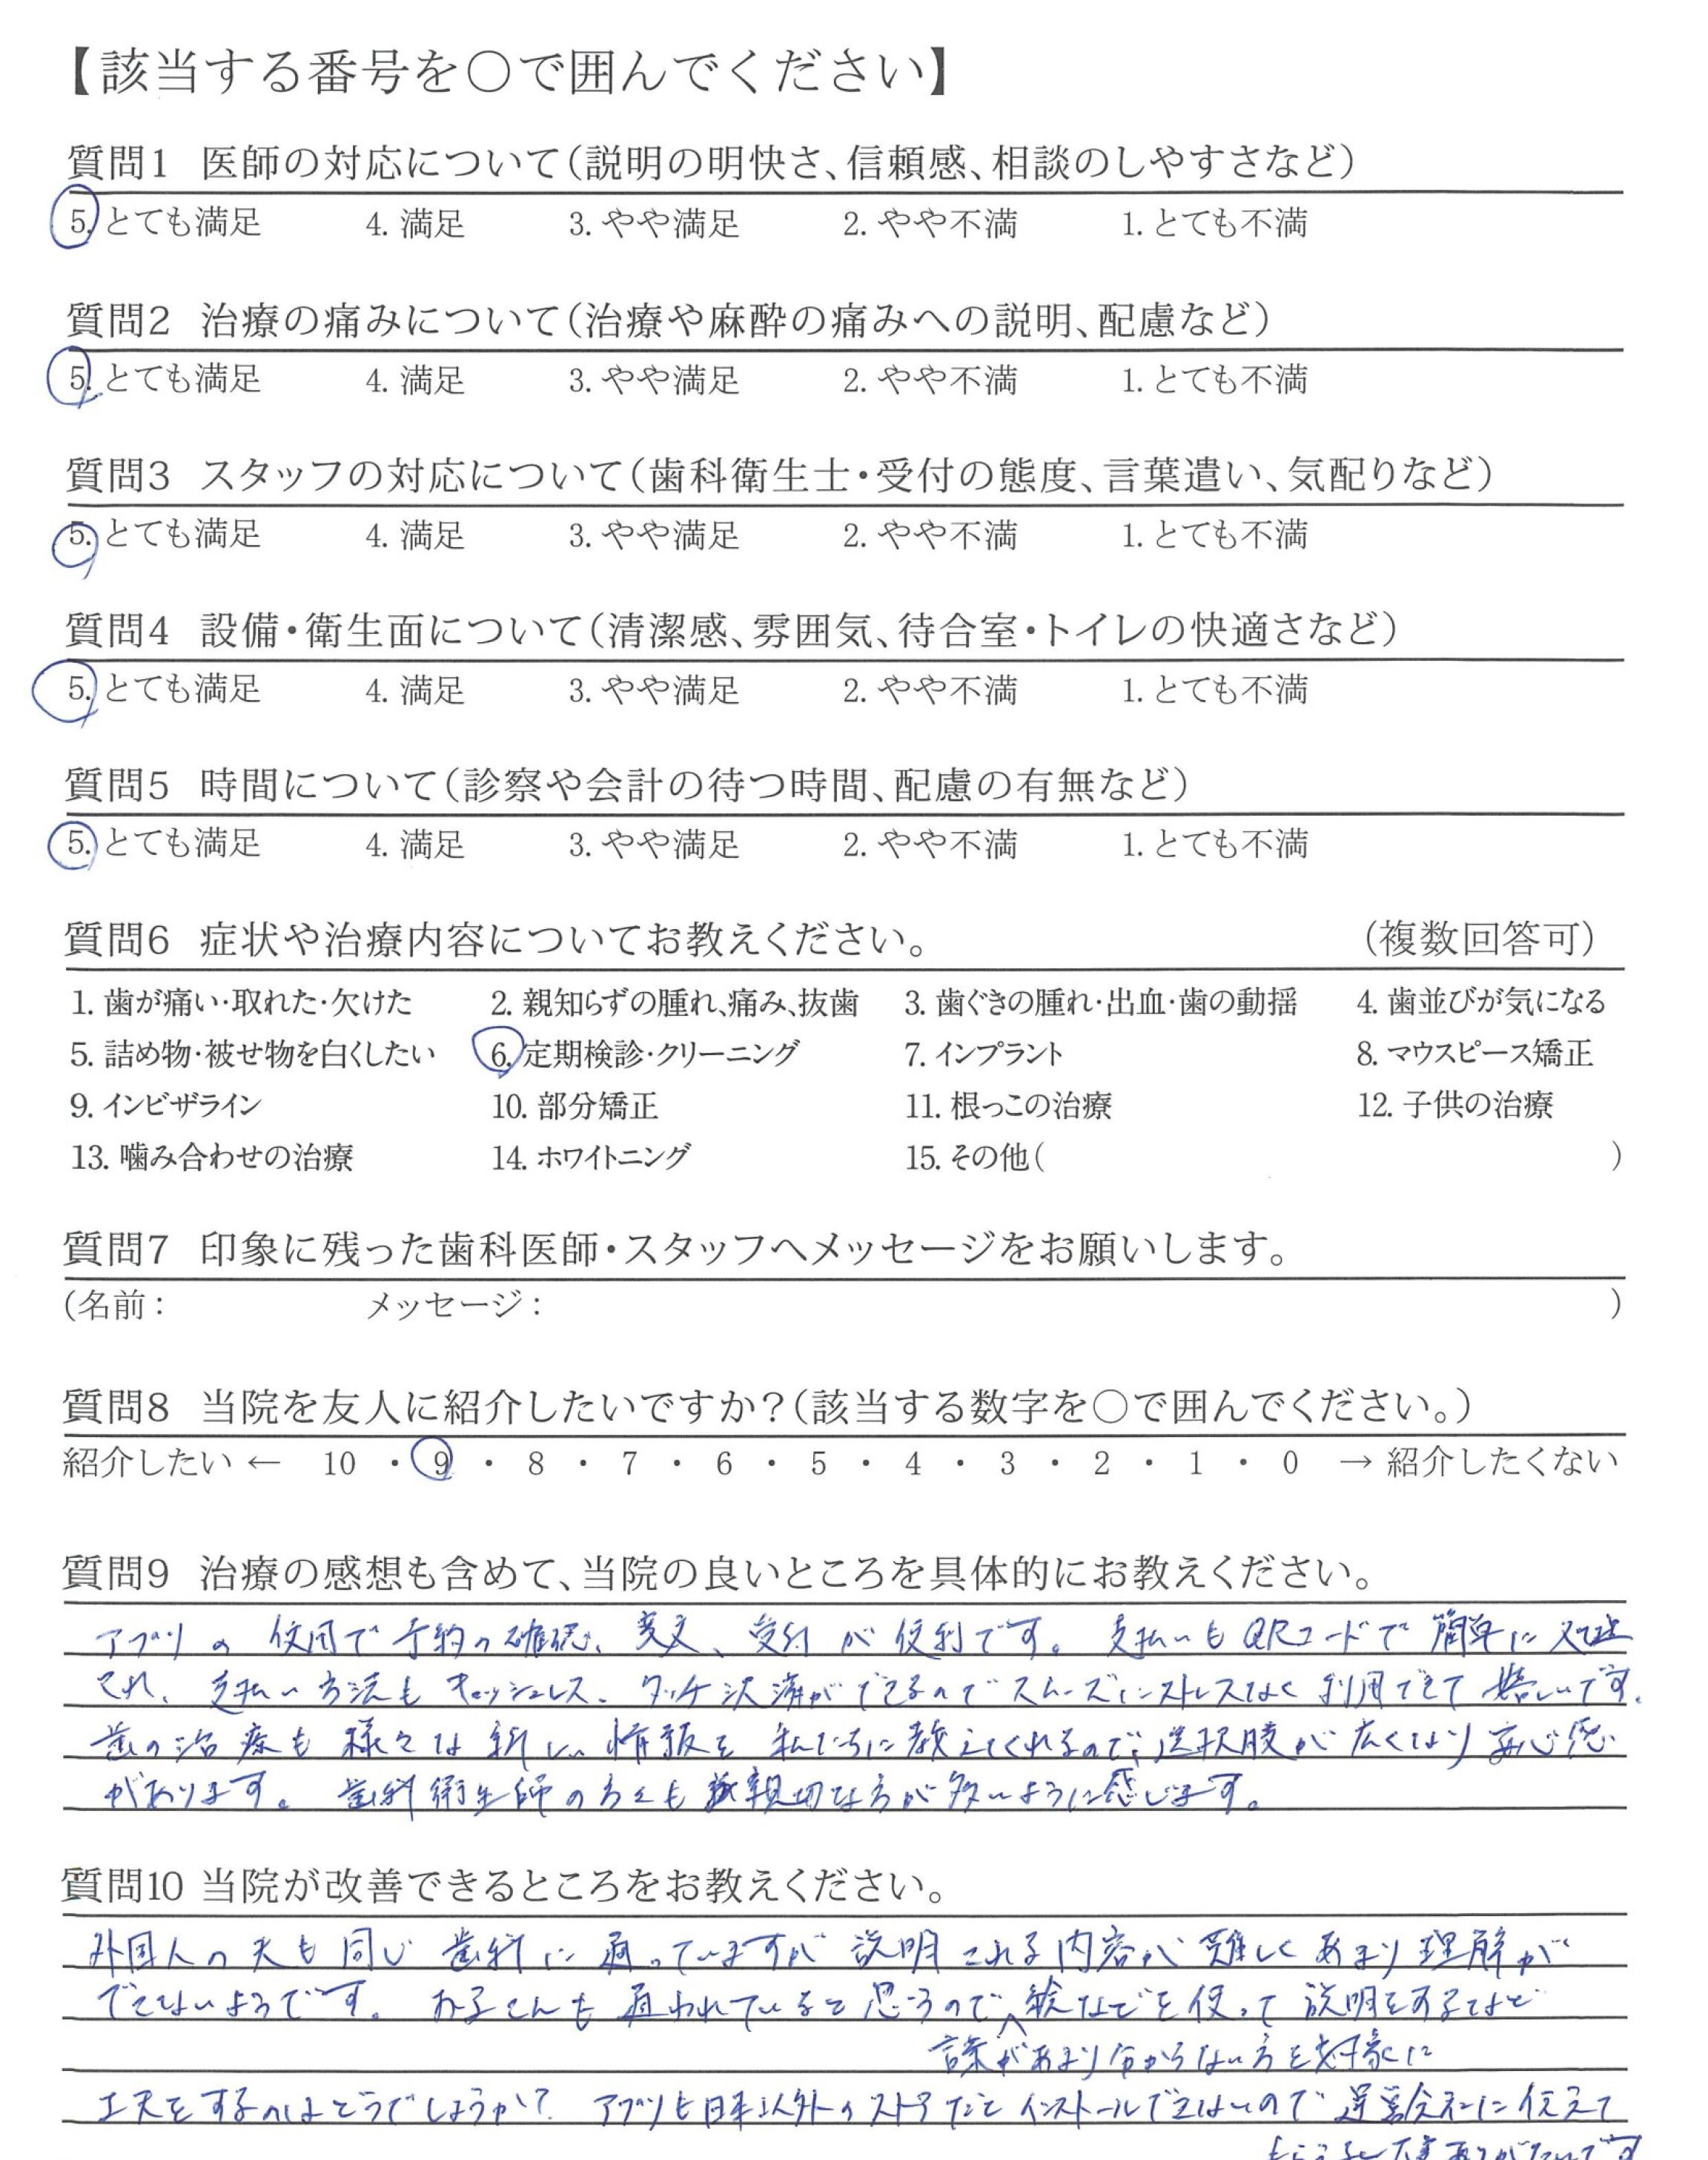 【該当する番号を〇で囲んでください】
質問1 医師の対応について（説明の明快さ、信頼感、相談のしやすさなど）
5. とても満足 4. 満足 3. やや満足 2. やや不満 1. とても不満
質問2 治療の痛みについて（治療や麻酔の痛みへの説明、配慮など）
5. とても満足 4. 満足 3. やや満足 2. やや不満 1. とても不満
質問3 スタッフの対応について（歯科衛生士・受付の態度、言葉遣い、気配りなど）
5. とても満足 4. 満足 3. やや満足 2. やや不満 1. とても不満
質問4 設備・衛生面について（清潔感、雰囲気、待合室・トイレの快適さなど）
5. とても満足 4. 満足 3. やや満足 2. やや不満 1. とても不満
質問5 時間について（診察や会計の待つ時間、配慮の有無など）
5. とても満足 4. 満足 3. やや満足 2. やや不満 1. とても不満
質問6 症状や治療内容についてお教えください。 （複数回答可）
1. 歯が痛い・取れた・欠けた 2. 親知らずの腫れ、痛み、抜歯 3. 歯ぐきの腫れ・出血・歯の動揺 4. 歯並びが気になる
5. 詰め物・被せ物を白くしたい 6. 定期検診・クリーニング 7. インプラント 8. マウスピース矯正
9. インビザライン 10. 部分矯正 11. 根っこの治療 12. 子供の治療
13. 噛み合わせの治療 14. ホワイトニング 15. その他（ ）
質問7 印象に残った歯科医師・スタッフへメッセージをお願いします。
（名前： メッセージ： ）
質問8 当院を友人に紹介したいですか？（該当する数字を〇で囲んでください。）
紹介したい ← 10 ・ 9 ・ 8 ・ 7 ・ 6 ・ 5 ・ 4 ・ 3 ・ 2 ・ 1 ・ 0 → 紹介したくない
質問9 治療の感想も含めて、当院の良いところを具体的にお教えください。
アプリの使用で予約の確認、変更、受付が便利です。支払いもQRコードで簡単に
され、支払い方法もキャッシュレス、タッチ決済ができるのでスムーズにストレスなく利用できて嬉しいです。
歯の治療も様々な新しい情報を私たちに教えてくれるので、選択肢が広くなり安心感
があります。歯科衛生師の方々も親切な方が多いように感じます。
質問10 当院が改善できるところをお教えください。
外国人の夫も同じ歯科に通っていますが説明される内容が難しくあまり理解が
できないようです。お子さんも通われていると思うので絵などを使って説明をするなど
言葉があまり分からない方を対象に
工夫をするのはどうでしょうか？アプリも日本以外のストアだとインストールできないので運営会社に伝えて
もらえると大変ありがたいです